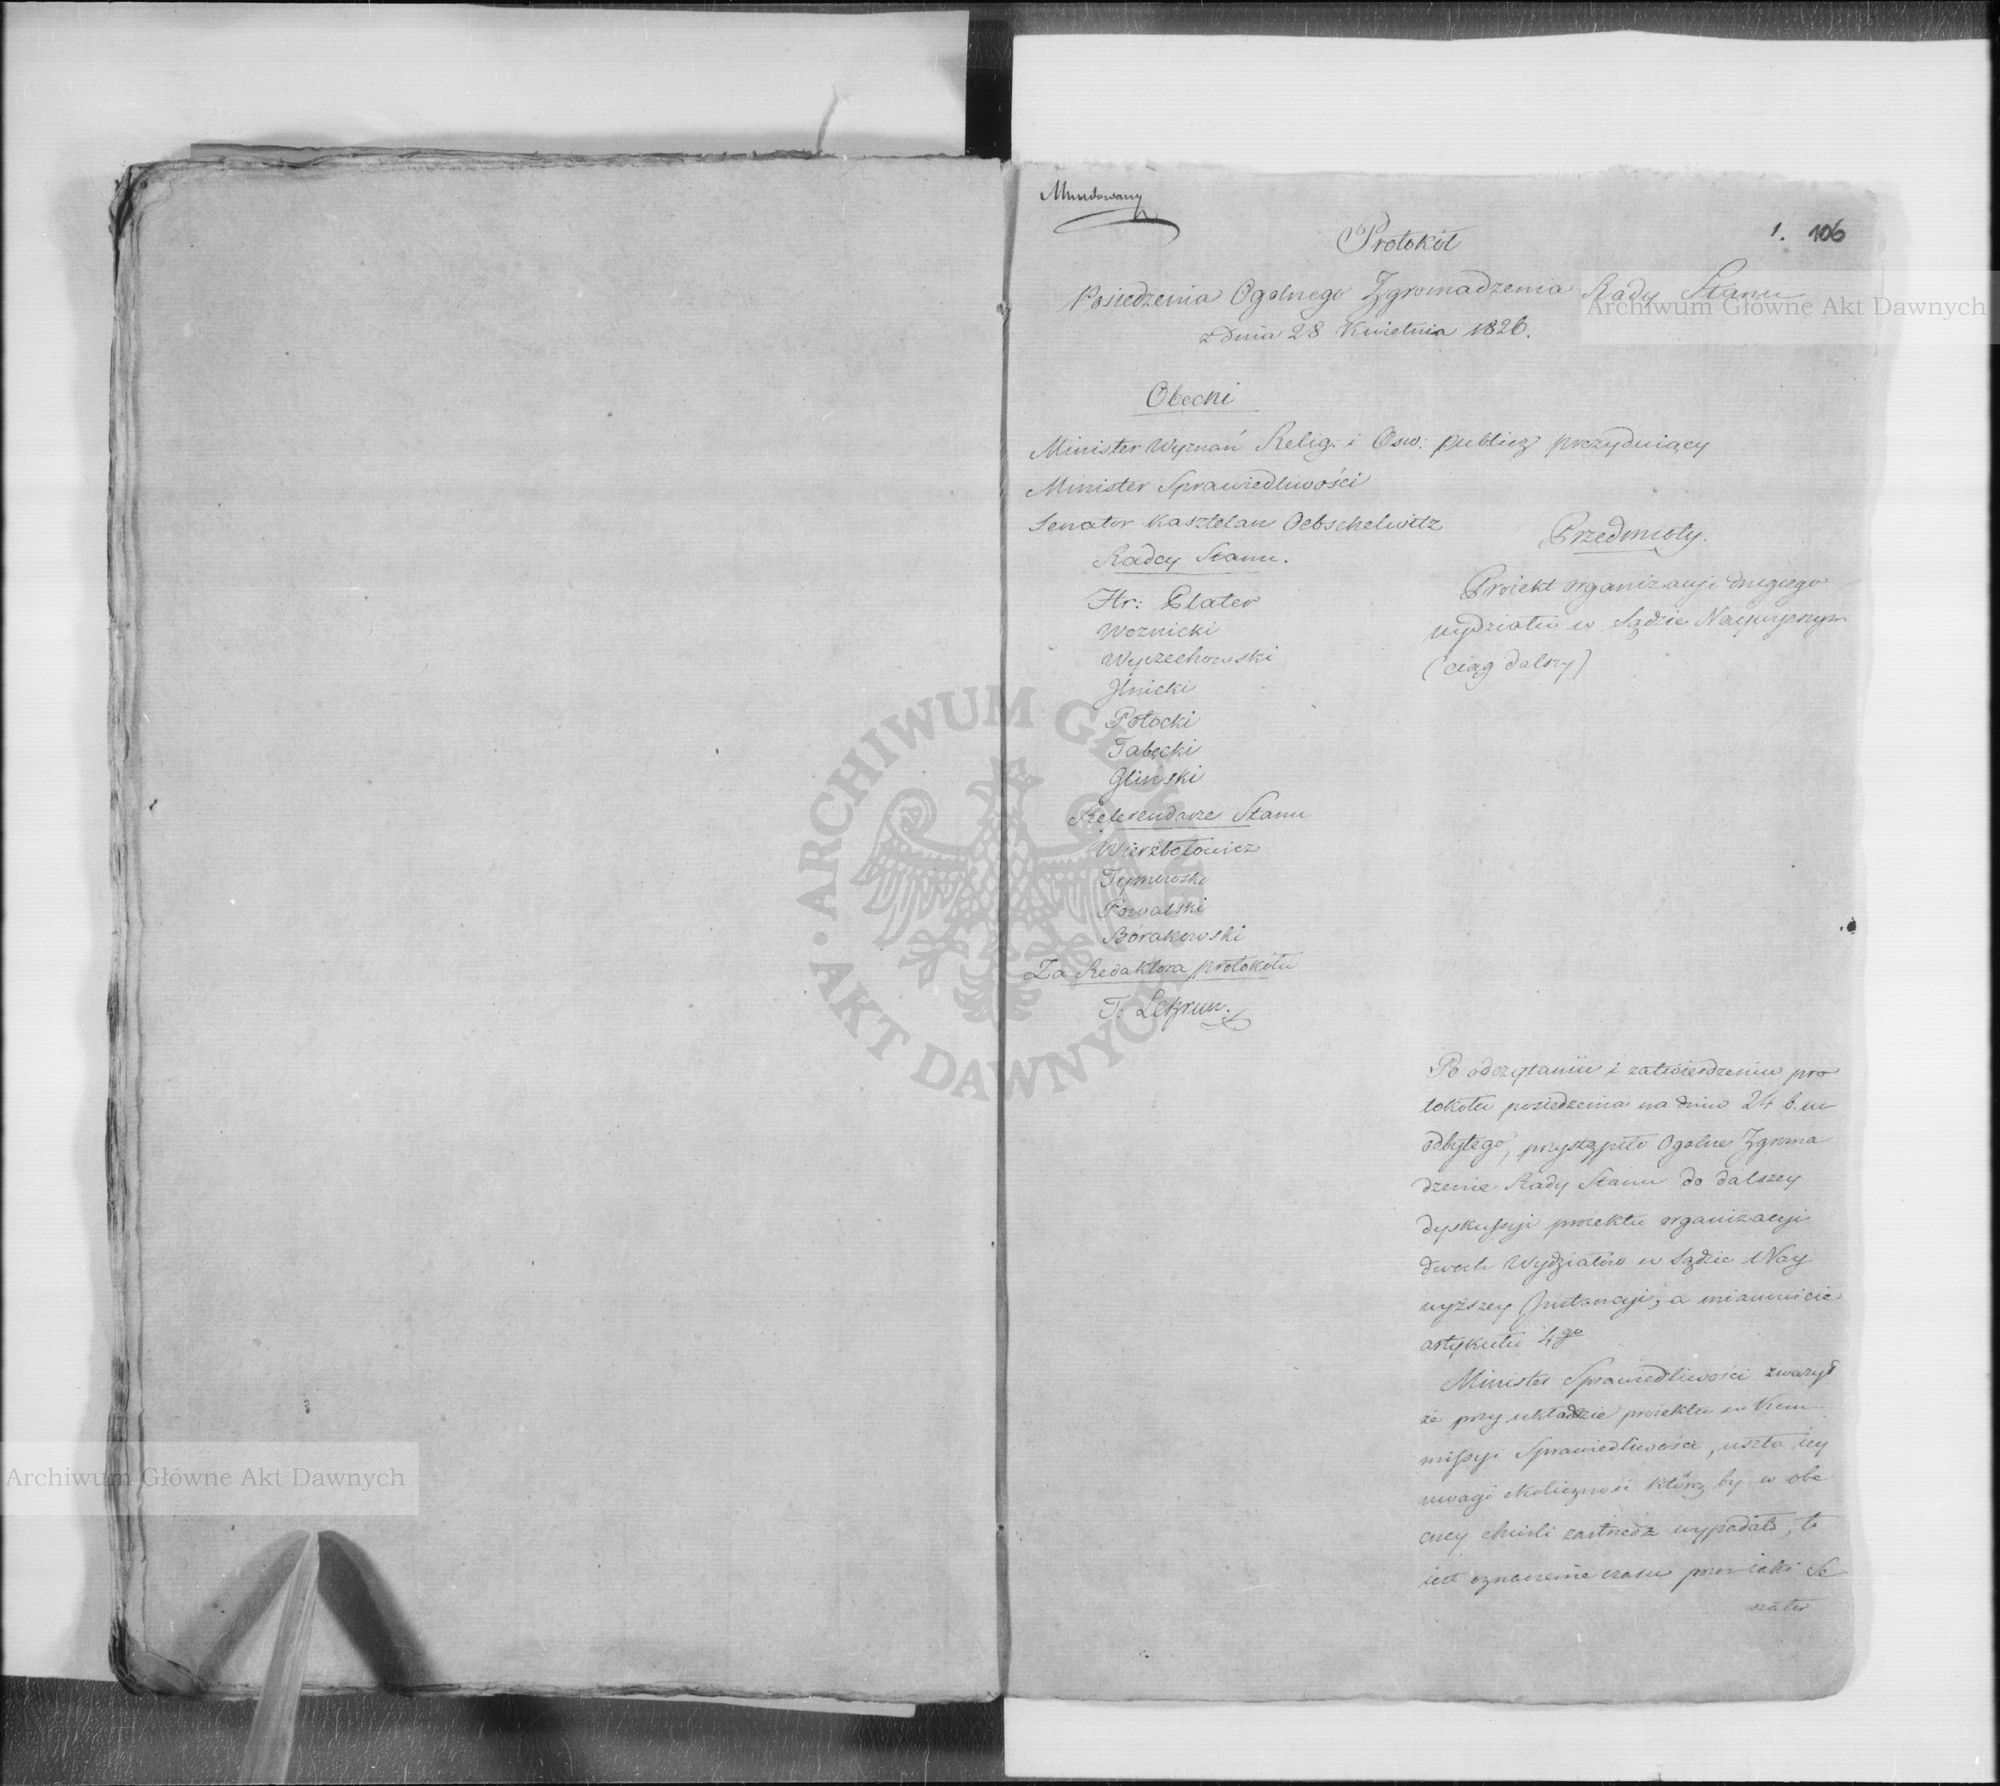 Mundowany
1. 106
Protokół
Posiedzenia Ogolnego Zgromadzenia Rady Stanu
z dnia 28 Kwietnia 1826.
Obecni
Minister Wyznań Relig: i Osw: publicz prezyduiący
Minister Sprawiedliwości
Senator Kasztelan Oebschelwitz
Radcy Stanu.
Hr: Plater
Woznicki
Wyczechowski
Jlnicki
Potocki
Tabęcki
Gliński
Referendarze Stanu
Wierzbołowicz
Tymowski
Powalski
Borakowski
Za Redaktora protokółu
T: Lebrun.
Przedmioty.
Proiekt organizacyi drugiego
wydziału w Sądzie Naywyższym
(ciąg dalszy)
Po odczytaniu i zatwierdzeniu pro
tokółu posiedzenia na dniu 24 b. m
odbytego, przystąpiło Ogolne Zgroma
dzenie Rady Stanu do dalszey
dyskussyi proiektu organizacyi
dwoch Wydziałów w Sądzie Nay
wyższey Instancyi, a mianowicie
artykułu 4go
Minister Sprawiedliwości zważył
że przy układzie proiektu w Kom
missyi Sprawiedliwości, uszła iey
uwagi okoliczność którą by w obe
cney chwili zastrzedz wypadało, to
iest oznaczenie czasu przez iaki Se
nator
Archiwum Główne Akt Dawnych
Archiwum Główne Akt Dawnych
ARCHIWUM GŁÓWNE AKT DAWNYCH